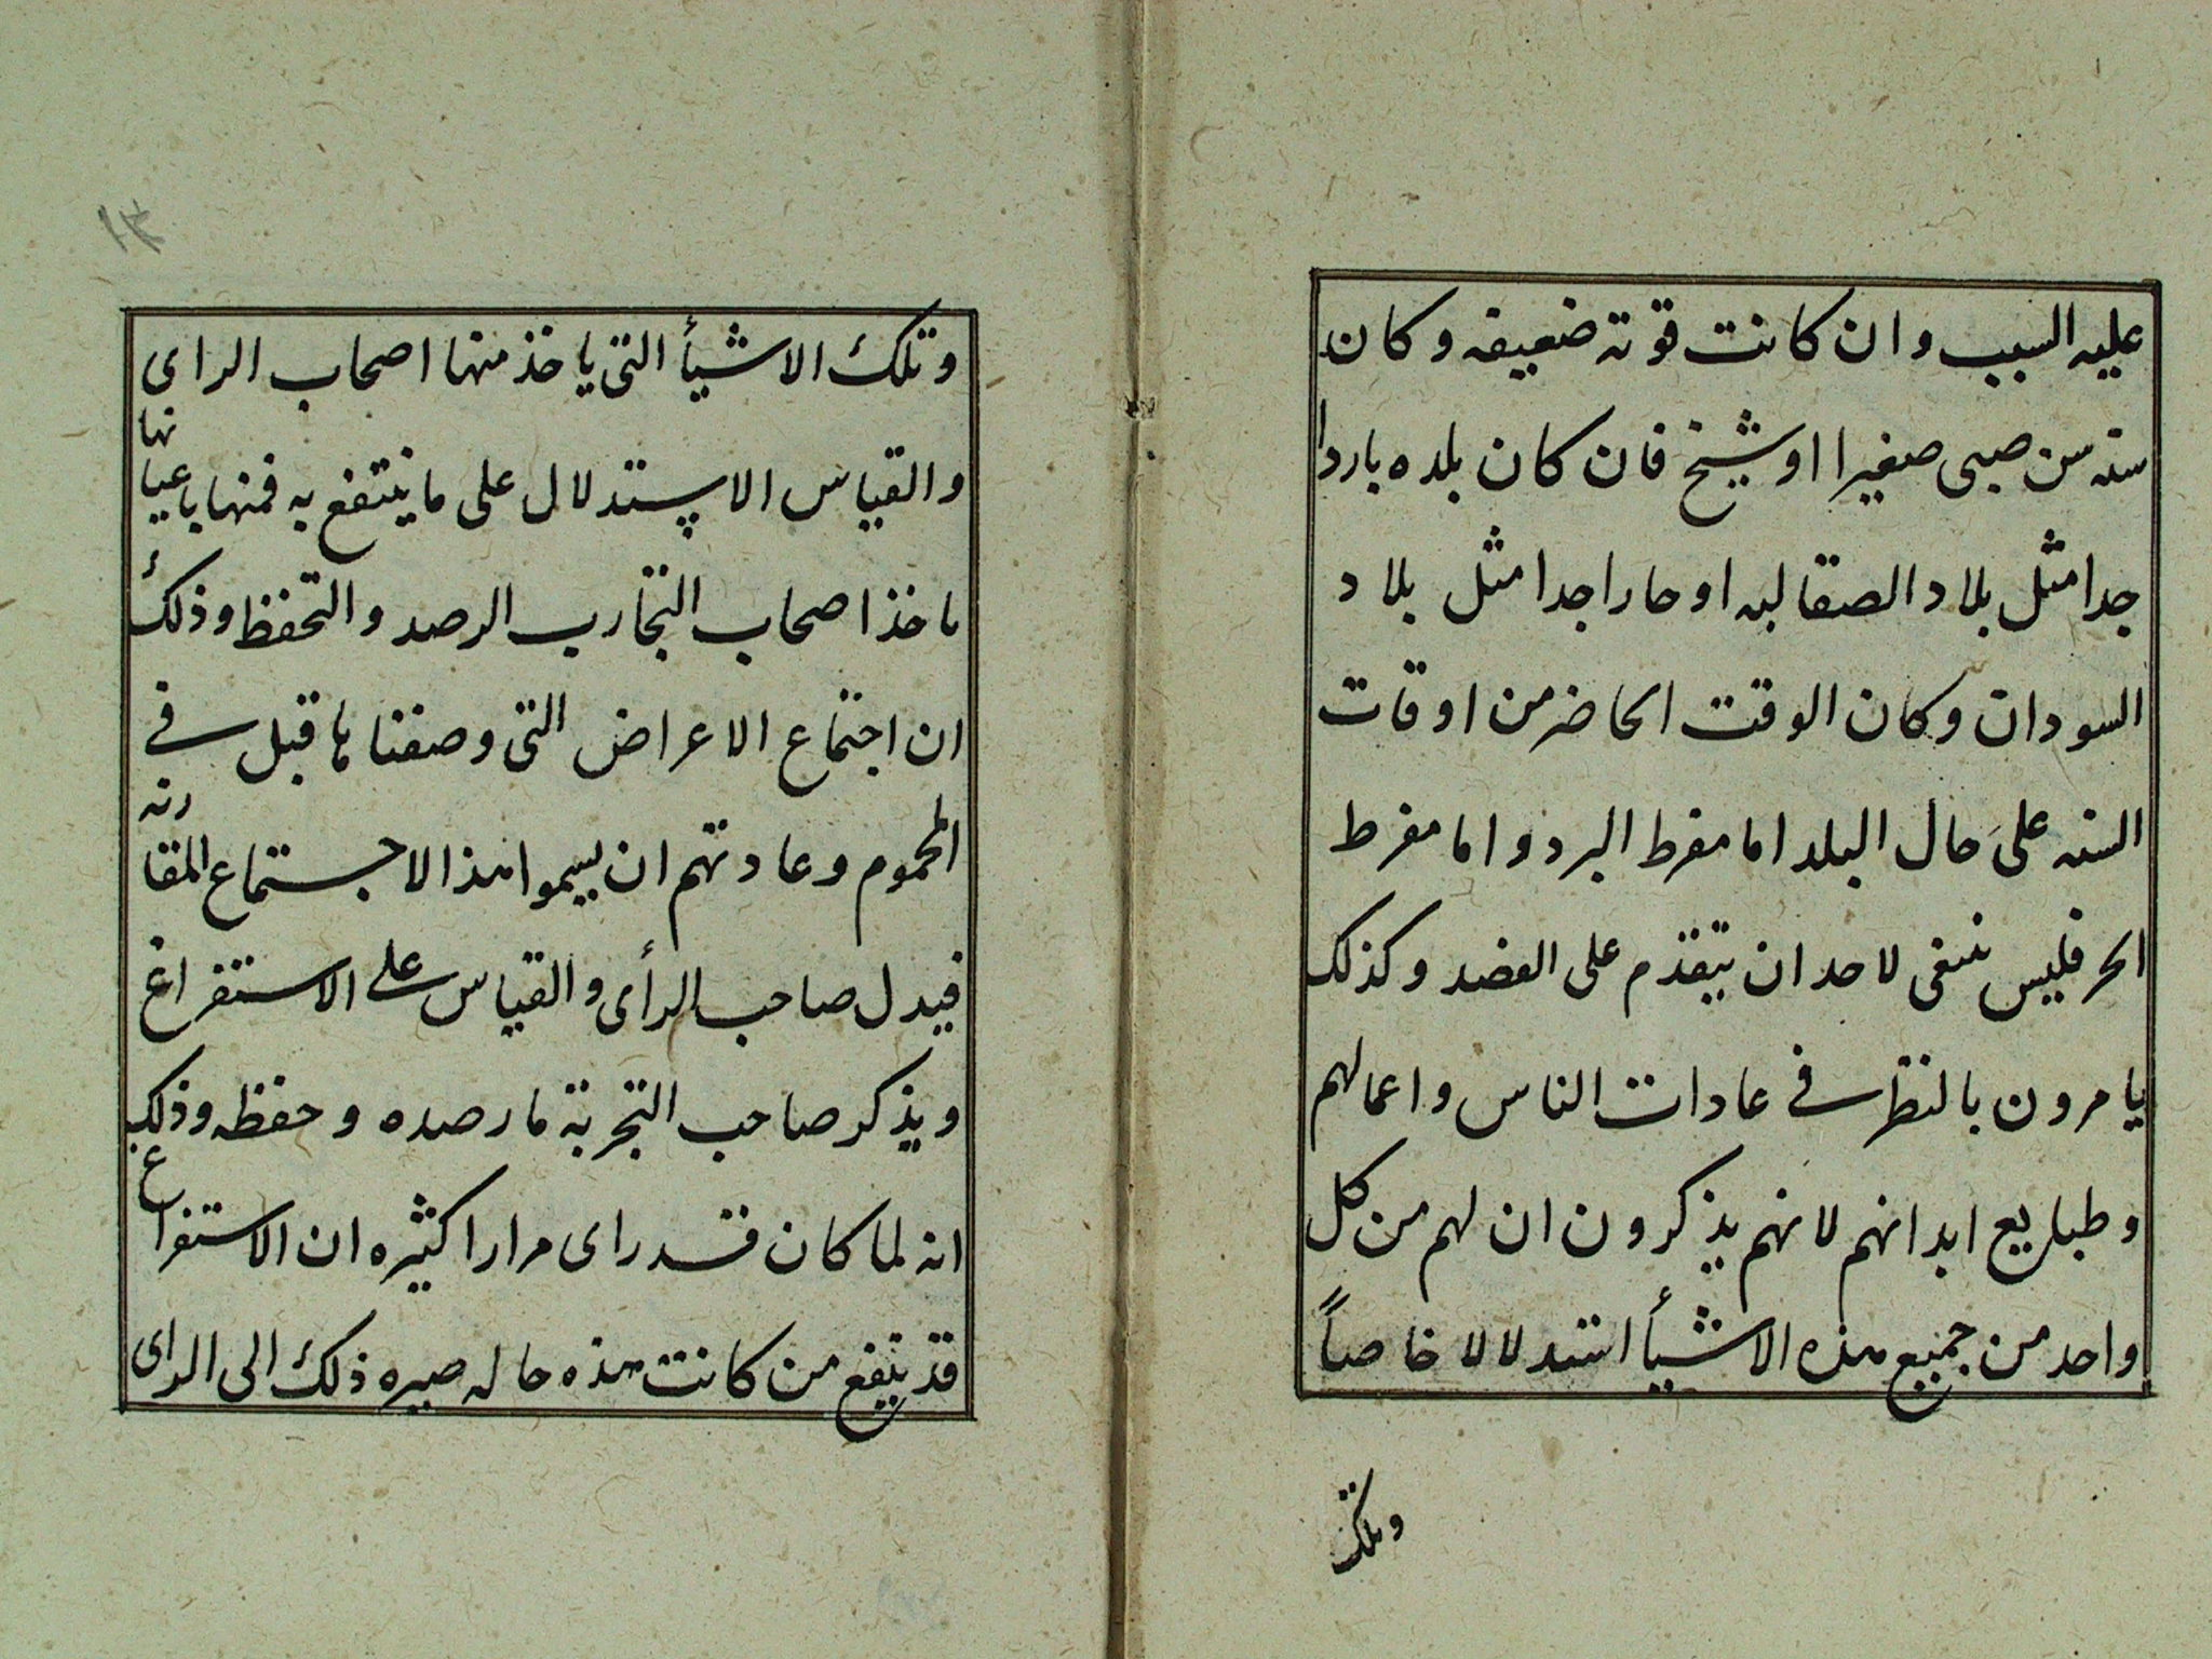 عليه السبب وان كانت قوته ضعيفه وكان
سنه سن صبى صغيرا اوشيخ فان كان بلده باردا
جدا مثل بلاد الصقالبه اوحارا جدا مثل بلاد
السودان وكان الوقت الحاضر من اوقات
السنه على حال البلد اما مفرط البرد واما مفرط
الحر فليس ينبغى لاحد ان يتقدم على الفصد وكذلك
يامرون بالنظر فى عادات الناس واعمالهم
وطبايع ابدانهم لانهم يذكرون ان لهم من كل
واحد من جميع هذه الاشيأ استدلالا خاصاً
وتلك
١٣
وتلك الاشيأ التى ياخذ منها اصحاب الراى
والقياس الاستدلال على ما ينتفع به فمنها باعيانها
ماخذ اصحاب التجارب الرصد والتحفظ وذلك
ان اجتماع الاعراض التى وصفناها قبل فى
المحموم وعادتهم ان يسموا هذا الاجتماع المقارنه
فيدل صاحب الرأى والقياس على الاستفراغ
ويذكر صاحب التجربة ما رصده وحفظه وذلك
انه لما كان قد راى مرارا كثيره ان الاستفراع
قد ينفع من كانت هذه حاله صيره ذلك الى الراى